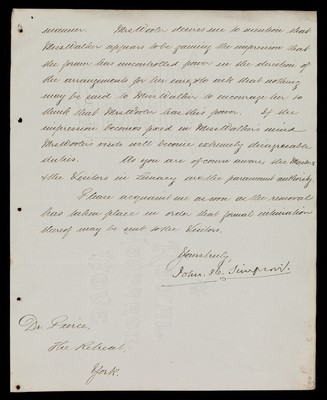 manner. Mrs Wooler desires me to mention that
Miss Walker appears to be gaining the impression that
the former has uncontrolled power in the direction of
the arrangements for her care, & to ask that nothing
may be said to Miss Walker to encourage her to
think that Mrs Wooler has this power. If the
impression becomes fixed in Miss Walker's mind
Mrs Wooler's visits will become extremely disagreeable
duties. As you are of course aware the Masters
& the Visitors in Lunacy are the paramount authority.
Please acquaint me as soon as the removal
has taken place in order that formal intimation
thereof may be sent to the Visitors.
Yours truly,
John. Simpson.
Dr. Pierce,
The Retreat,
York.